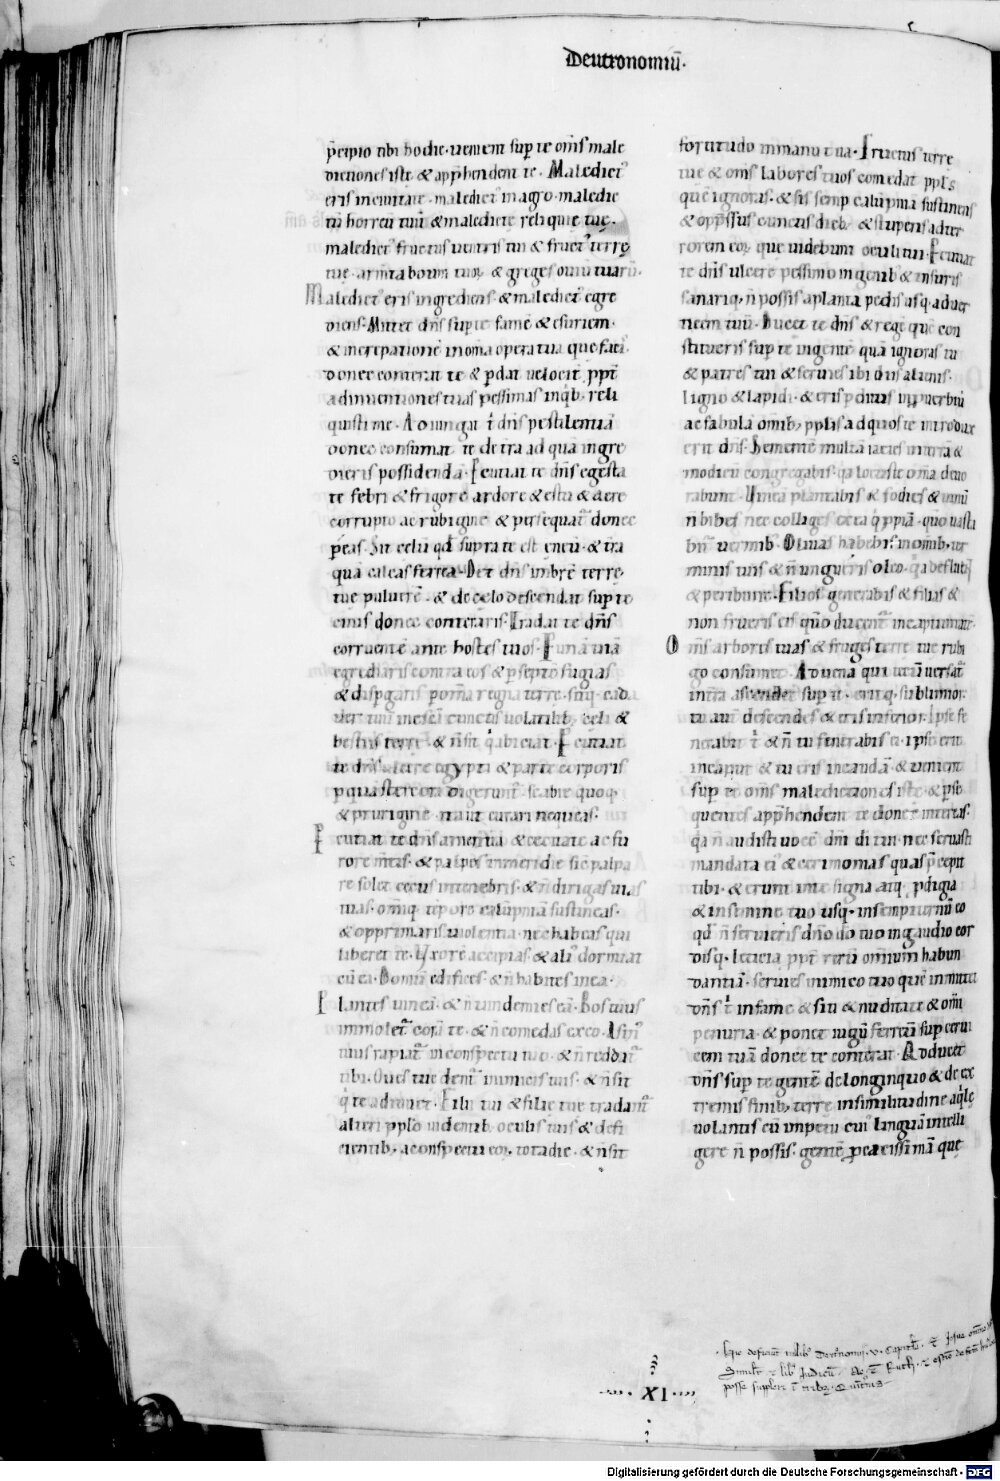 Deutronomiū·
p̄cipio tibi hodie· uenient sup̱ te om̄s male
dictiones iste & app̄hendent te· Maledict᾽
eris in ciuitate· maledict᾽ in agro· maledic
tū horreū tuū & maledicte reliquie tue·
maledict᾽ fructus uentris tui & fruct᾽ terrę
tue· armta boum tuoꝝ & greges ouiū tuarū·
Maledict᾽ eris ingrediens· & maledict᾽ egre
diens· Mittet dn̄s sup te famē & esuriem·
& increpationē in om̄a opera tua que faci᾽
donec conterat te & p̱dat uelocit᾽ ppt̄
adinuentiones tuas pessimas in qͥb· reli
quisti me· Adiungat t̄ dn̄s pestilentiā
donec consumat te de tr̄a ad quā ingre
dieris possidendā· Percutiat te dn̄s egesta
te febri & frigore ardore & estu & aere
corrupto ac rubigine & persequat᾽ donec
pereas· Sit celū qd̄ supra te est eneū· & tr̄a
quā calcas ferrea· Det dn̄s imbrē terre
tue puluerē· & de celo descendat sup te
cinis donec conteraris· Tradat te dn̄s
corruentē ante hostes tuos· P unā uiā
egrediaris contra eos & p̱ septē fugias
& disp̱garis p̱ om̄a regna terre· sitq· cada
uer tuū in escā cunctis uolatilib; celi &
bestiis terre· & n̄ sit qͥ abiciat· Percutiat
te dn̄s ulcere egypti & parte corporis
p̱ quā stercora digerunt᾽· scabie quoq·
& prurigine· ita ut curari nequeas·
Percutiat te dn̄s amentia & cecitate ac fu
rore m̄tis· & palpes in meridie sic̄ palpa
re solet cecus in tenebris· & n̄ dirigas uias
tuas· omīq· tēpore calūpniā sustineas·
& opprimaris uiolentia· nec habeas qui
liberet te· Uxorē accipias· & ali᾽ dormiat
cū ea· Domū edifices· & n̄ habites in ea·
Plantes uineā· & n̄ uindemies eā· Bos tuus
immolet᾽ corā te· & n̄ comedas ex eo· Asin᾽
tuus rapiat᾽ in conspectu tuo· & n̄ reddat᾽
tibi· Oues tue dent᾽ inimicis tuis· & n̄ sit
qͥ te adiuuet· Filii tui & filie tue tradant᾽
alteri pplō uidentib; oculis tuis & defi
cientib· ad conspectū eoꝝ· tota die· & n̄ sit
fortitudo in manu tua· Fructus terre
tue & om̄s labores tuos comedat ppl's
quē ignoras· & sis semp calūpniā sustinens
& opp̄ssus cunctis dieb; & stupens ad ter
rorem eoꝝ que uidebunt oculi tui· Percutiat
te dn̄s ulcere pessimo in genib & in suris
sanariq· n̄ possis a planta pedis usq· ad uer
ticem tuū· Ducet te dn̄s & regē quē con
stitueris sup te in gentē quā ignoras tu
& patres tui & seruies ibi diis alienis·
ligno & lapidi· & eris p̱ditus in ꝓuerbiū
ac fabulā om̄ib; pplis ad quos te introdux
erit dn̄s· Sementē multā iacies in terrā &
modicū congregabis· qͥa locuste om̄a deuo
rabunt· Uineā plantabis & fodies & uinū
n̄ bibes nec colliges ex ea qͥppiā· quō uasta
bit᾽ uermib· Oliuas habebis in om̄ib· ter
minis tuis & n̄ ungueris oleo· qͥa defluēt
& peribunt· Filios generabis & filias &
non frueris eis quō ducent᾽ in captiuitatē·
Om̄s arbores tuas & fruges terre tue rubi
go consumet· Aduena qui tecū uersat᾽
in tr̄a ascendet sup te· eritq· sublimior·
tu aū descendes & eris inferior· Ipse fe
nerabit t̄ & n̄ tu fenerabis ei· ipse erit
in caput & tu eris in caudā· & uenient
sup te om̄s maledictiones iste & p̱se
quentes app̄hendent te donec intereas·
qͥa n̄ audisti uocē dn̄i di tui· nec seruasti
mandata ei᾽ & cerimonias quas p̄cepit
tibi· & erunt in te signa atq· ꝓdigia
& in semine tuo usq· in sempiternū eo
qd̄ n̄ seruieris dn̄o dō tuo in gaudio cor
disq· leticia ppt̄ rerū omnium habun
dantiā· seruies inimico tuo quē inmittet
dn̄s t̄ in fame & siti & nuditate & om̄i
penuria· & ponet iugū ferreū sup cerui
cem tuā donec te conterat· Adducet
dn̄s sup te gentē de longinquo & de ex
tremis finib; terre in similitudinē aqͥlę
uolantis cū impetu cui᾽ linguā intelli
gere n̄ possis· gentē p̱cacissimā que
·XI·
Digitalisierung gefördert durch die Deutsche Forschungsgemeinschaft - DFG